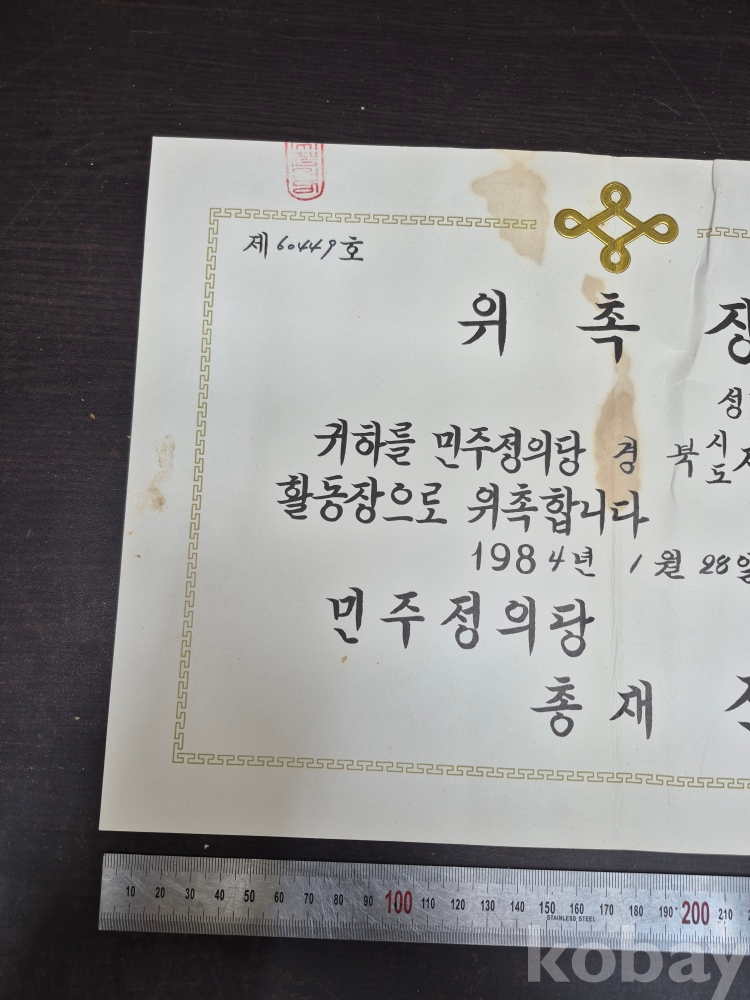 제60449호
위 촉 장
성
귀하를 민주정의당 경 북 시 도
활동장으로 위촉합니다
1984년 1월 28일
민주정의당
총재
10 20 30 40 50 60 70 80 90 100 110 120 130 140 150 160 170 180 190 200 210
STAINLESS STEEL
kobay